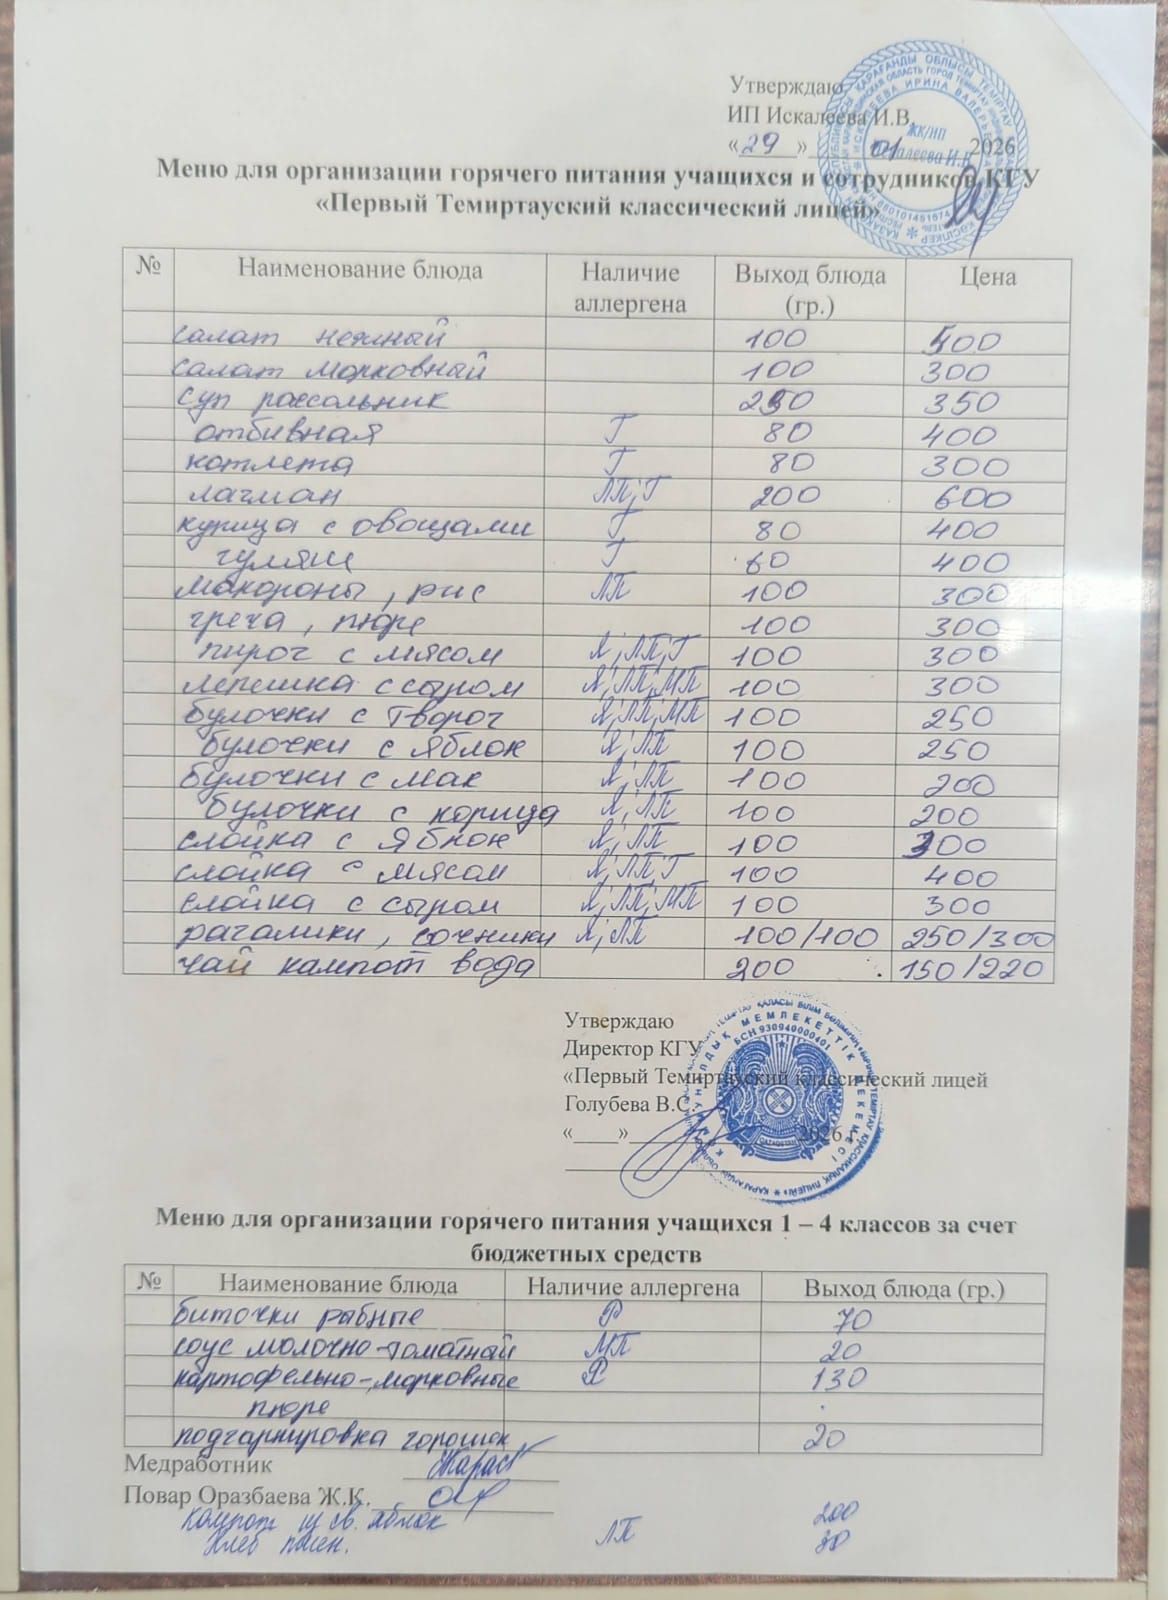 Утверждаю
ИП Искалеева И.В.
«29» 01 2026
Меню для организации горячего питания учащихся и сотрудников КГУ
«Первый Темиртауский классический лицей»
№ Наименование блюда Наличие аллергена Выход блюда (гр.) Цена
салат нежный 100 500
салат морковный 100 300
суп рассольник 250 350
отбивная Г 80 400
котлета Г 80 300
лагман ЛП; Г 200 600
курица с овощами Г 80 400
гуляш Г 60 400
макороны, рис ЛП 100 300
греча, пюре 100 300
пирог с мясом Я; ЛП; Г 100 300
лепешка с сыром Я; ЛП; МП 100 300
булочки с творог Я; ЛП; МП 100 250
булочки с яблок Я; ЛП 100 250
булочки с мак Я; ЛП 100 200
булочки с корица Я; ЛП 100 200
слойка с яблок Я; ЛП 100 300
слойка с мясом Я; ЛП; Г 100 400
слойка с сыром Я; ЛП; МП 100 300
рагалики, сочники Я; ЛП 100/100 250/300
чай кампот вода 200 150/220
Утверждаю
Директор КГУ
«Первый Темиртауский классический лицей
Голубева В.С.
«____» 2026 г.
Меню для организации горячего питания учащихся 1 – 4 классов за счет
бюджетных средств
№ Наименование блюда Наличие аллергена Выход блюда (гр.)
биточки рыбные Р 70
соус молочно-томатный МП 20
картофельно-морковные 130
пюре
подгарнировка горошек 20
Медработник
Повар Оразбаева Ж.К.
Кампот из св. яблок 200
Хлеб пшен. ЛП 30